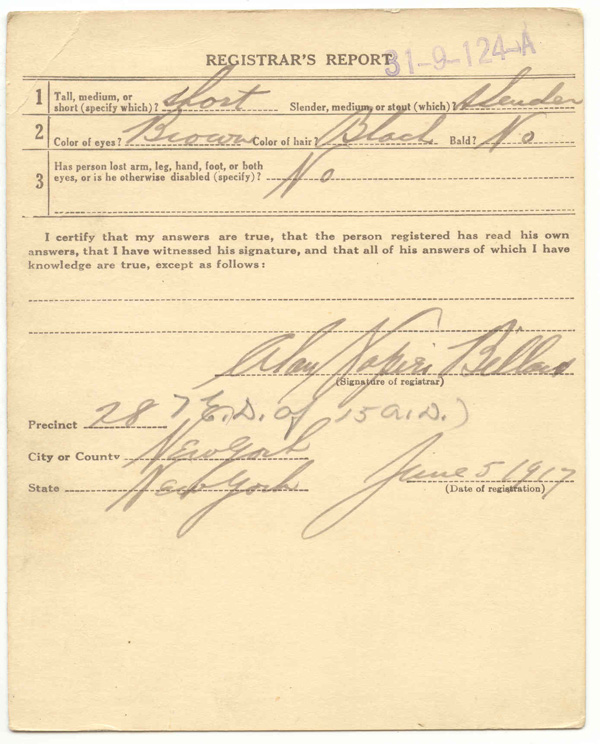 REGISTRAR'S REPORT
31-9-124-A
1 Tall, medium, or
short (specify which)? Short Slender, medium, or stout (which)? Slender
2 Color of eyes? Brown Color of hair? Black Bald? No
3 Has person lost arm, leg, hand, foot, or both
eyes, or is he otherwise disabled (specify)? No
I certify that my answers are true, that the person registered has read his own
answers, that I have witnessed his signature, and that all of his answers of which I have
knowledge are true, except as follows:
(Signature of registrar)
Precinct 28 7 E.D. of 15 A.D.)
City or County New York
State New York June 5 1917
(Date of registration)